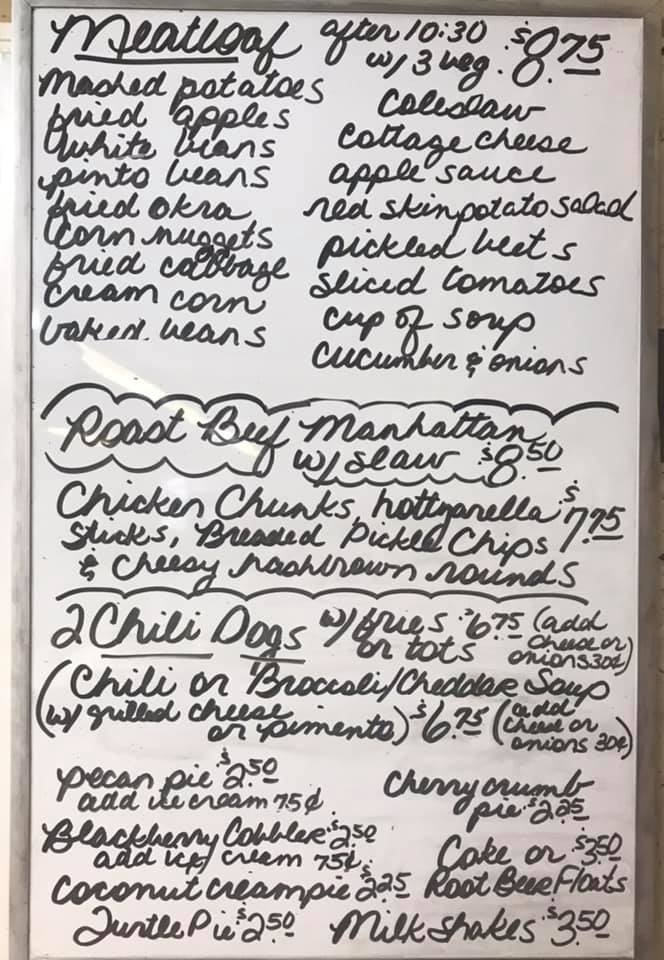 Meatloaf after 10:30 $8.75
w/ 3 veg.
mashed potatoes
fried apples
white beans
pinto beans
fried okra
corn nuggets
fried cabbage
cream corn
baked beans
coleslaw
cottage cheese
apple sauce
red skin potato salad
pickled beets
sliced tomatoes
cup of soup
cucumber & onions
Roast Beef Manhattan
w/ slaw $8.50
Chicken Chunks, hottzarella $7.75
Sticks, Breaded Pickle Chips
& Cheesy hashbrown rounds
2 Chili Dogs w/ fries $6.75 (add
or tots cheese or
onions 30¢)
(Chili or Broccoli/Cheddar Soup
(w/ grilled cheese
or pimento) $6.75 (add
cheese or
onions 30¢)
pecan pie $2.50
add ice cream 75¢
Blackberry Cobbler $2.50
add ice cream 75¢
coconut cream pie $2.25
Turtle Pie $2.50
Cherry crumb
pie $2.25
Coke or $3.50
Root Beer Floats
Milkshakes $3.50